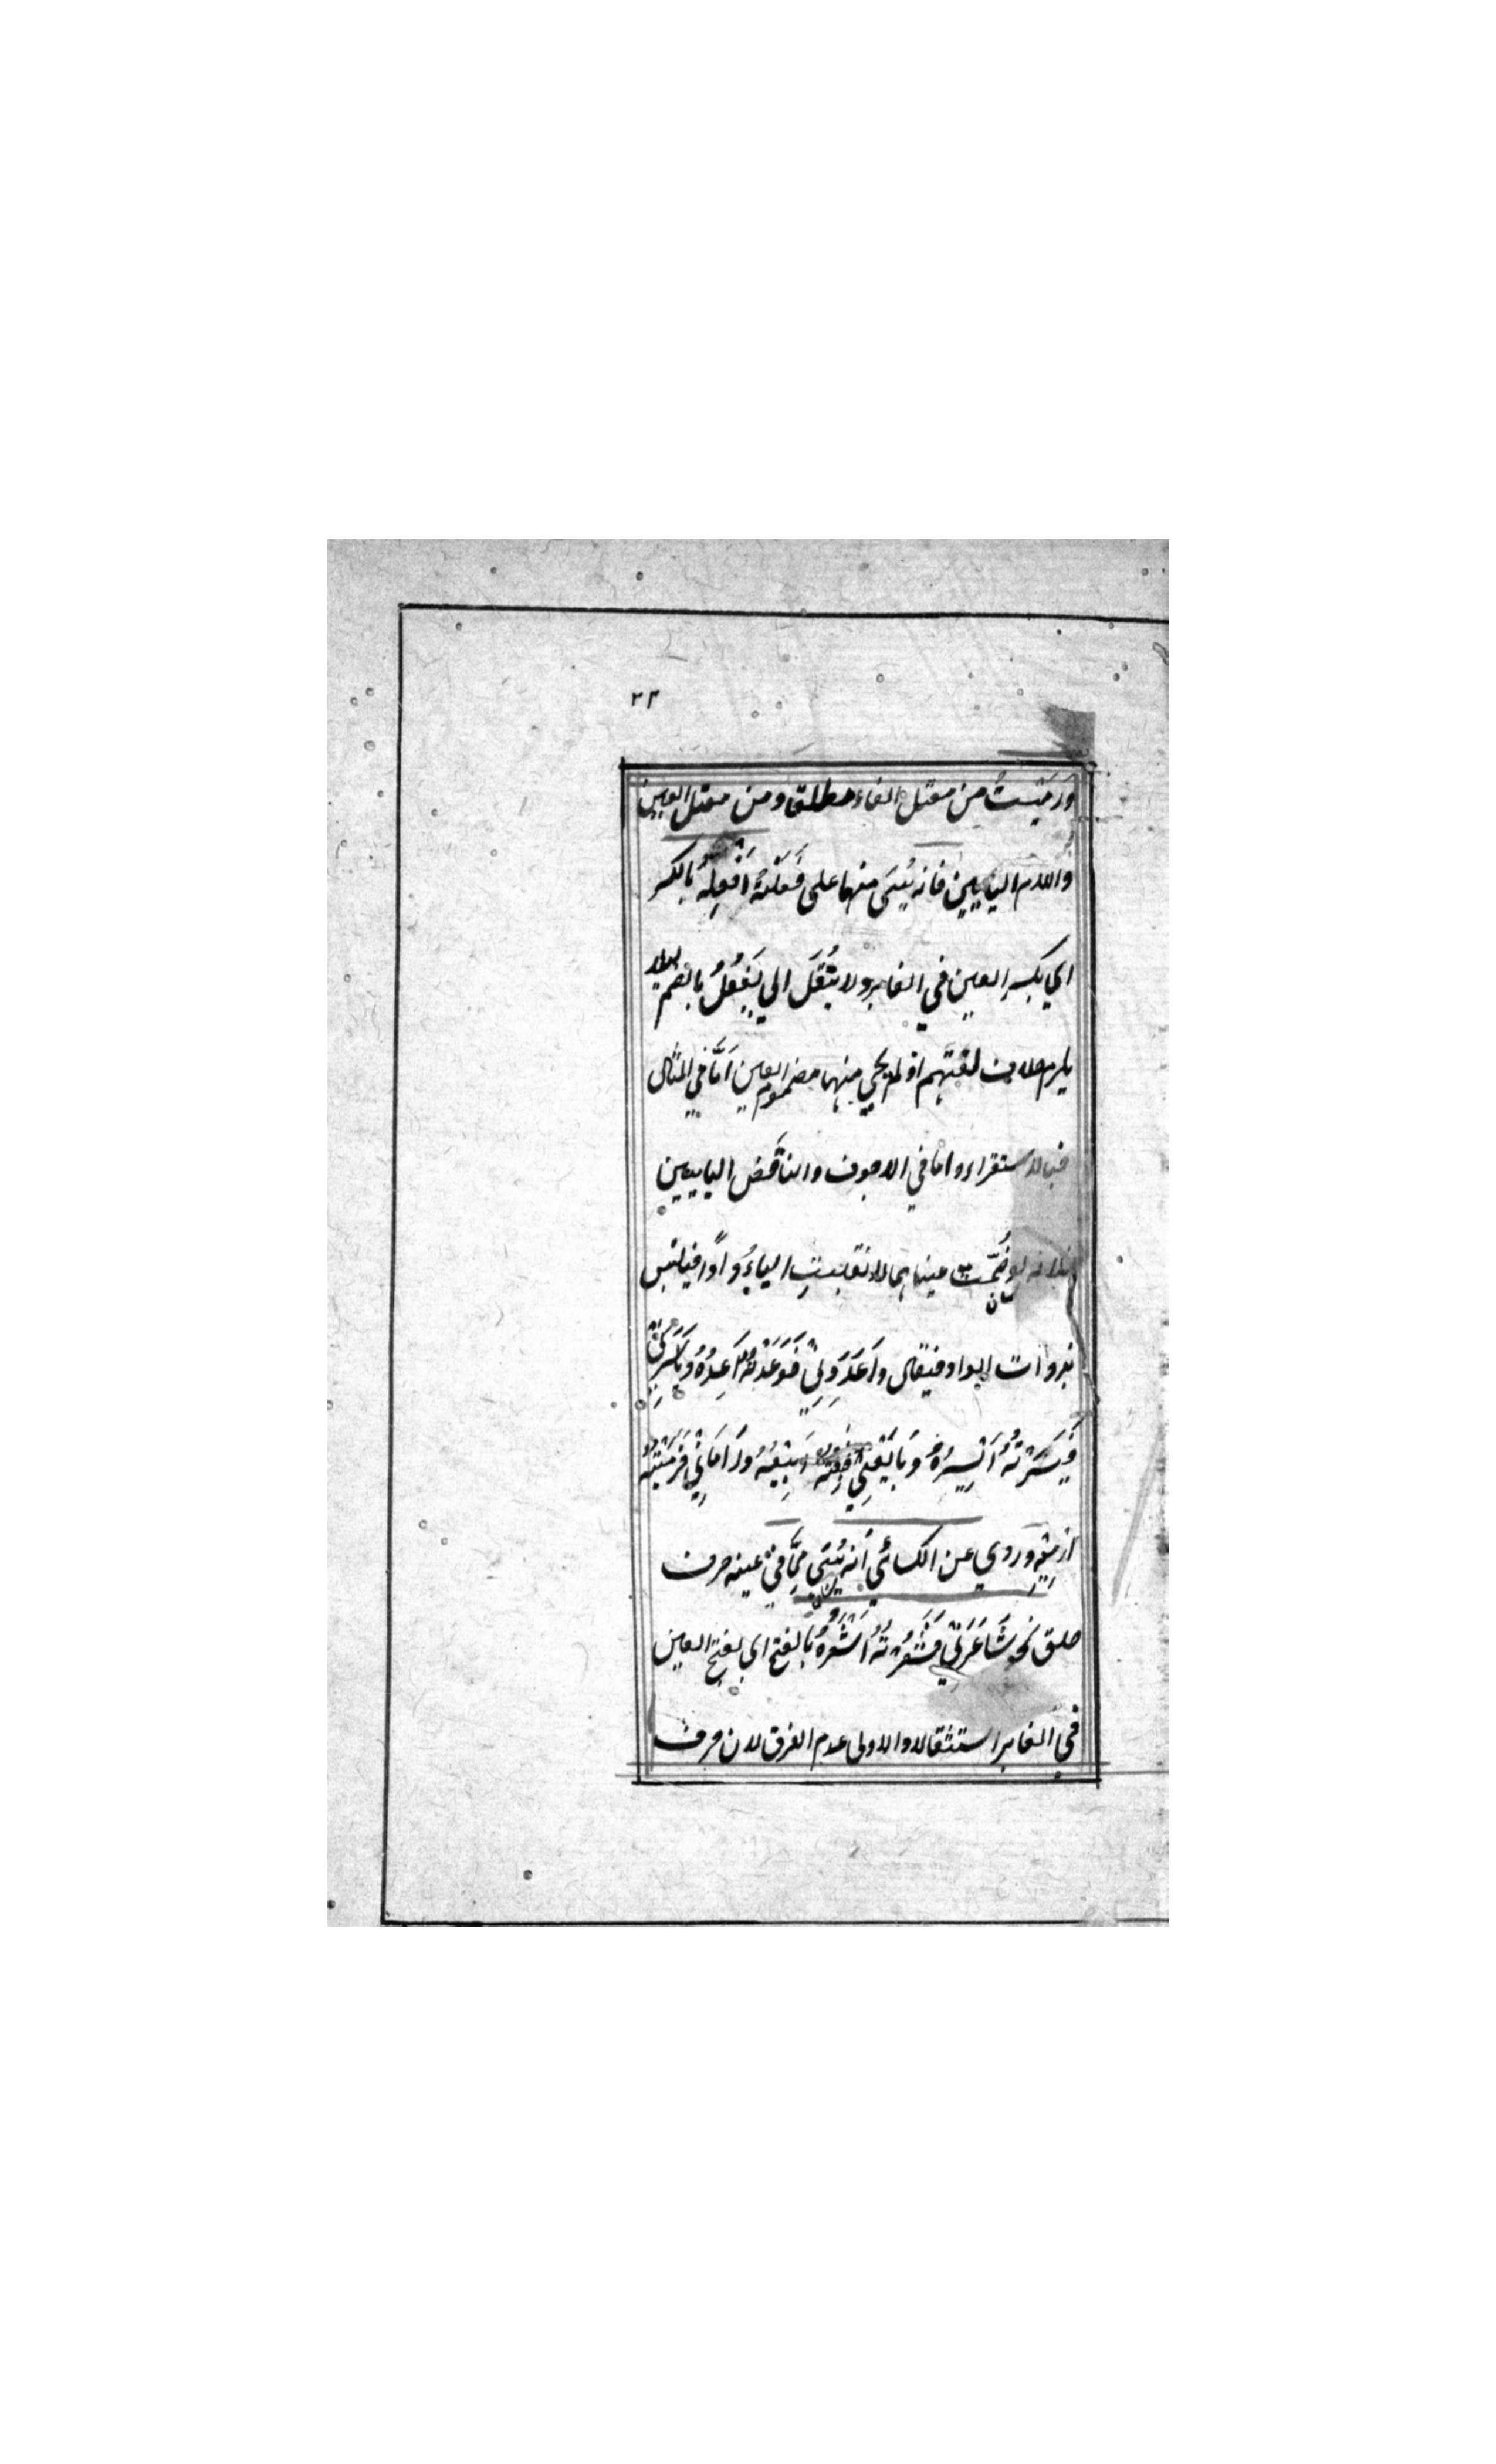 ٢٣
ورَمَيْتُ من معتل الفاء مطلقا ومن معتل العين
واللام اليائيين فانه يُبْنَى منها على فَعَلْتُهُ اَفْعِلُهُ بالكسر
اي بكسر العين في الغابر ولا يُنْقَلُ الي يَفْعُلُ بالضم لئلا
يلزم خلاف لغتهم اذ لم يجي منهما مضموم العين اَمَّا في المثال
فبالاستقراء واما في الاجوف والناقص اليائيين
فلانه لو ضُمَّت عينا هما لانقلبتِ الياءُ واوًا فيلتبس
بذوات الواو فيقال واعَدَنِي فَوَعَدْتُهُ اَعِدُهُ ويَاسَرَنِي
فَيَسَرْتُهُ اَيْسِرُهُ وبَايَعَنِي فَبِعْتُهُ اَبِيعُهُ ورَامَانِي فَرَمَيْتُهُ
اَرْمِيْهِ وروي عن الكسائي اَنه يُبْنَى مِمَّا في عينه حرف
حلق نحو شَاعَرَنِي فَشَعَرْتُهُ اَشْعَرُهُ بالفتح اي بفتح العين
في الغابر استثقالا والاولى عدم الفرق لان حرف